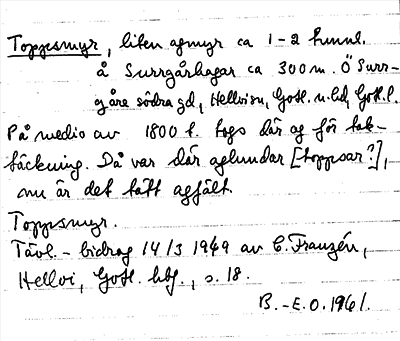 Toppsmyr, liten agmyr ca 1-2 tunnl.
å Surrgårhagar ca 300 m. Ö Surr-
gåre södra gd, Hellvi sn. Gotl. n. hd, Gotl. l.
På medio av 1800 t. togs där ag för tak-
täckning. Då var där aglundar [toppsar?],
nu är det tätt agfält.
Toppsmyr.
Tävl. - bidrag 14/3 1949 av C. Franzén,
Hellvi, Gotl. hbg., s. 18.
B.-E.O. 1961.